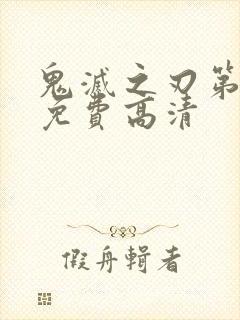 鬼滅之刃第
免費高清
假舟輯者